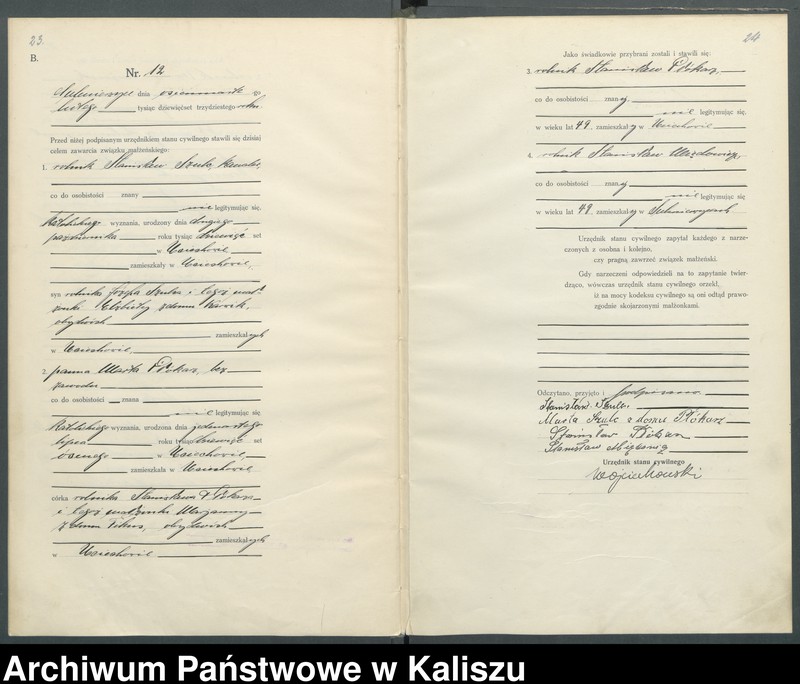 23.
B.
Nr. 12
dnia go
lutego tysiąc dziewięćset trzydziestego roku.
Przed niżej podpisanym urzędnikiem stanu cywilnego stawili się dzisiaj
celem zawarcia związku małżeńskiego:
1. rolnik Stanisław Szulc, kawaler,
co do osobistości znany
nie legitymując się.
Katolickiego wyznania, urodzony dnia drugiego
października roku tysiąc set
w
zamieszkały w
syn rolnika Józefa Szulca i tegoż mał-
żonki Elżbiety z domu
obydwóch
zamieszkałych
w
2. panna Marta Płókarz, bez
zawodu
co do osobistości znana
nie legitymując się
Katolickiego wyznania, urodzona dnia jedenastego
lipca roku tysiąc set
ósmego w
zamieszkała w
córka rolnika Stanisława Płókarza
i tegoż małżonki Marjanny
z domu obydwóch
zamieszkałych
w
24
Jako świadkowie przybrani zostali i stawili się:
3. rolnik Stanisław Płókarz,
co do osobistości znany
nie legitymując się.
w wieku lat 49, zamieszkały w
4. rolnik Stanisław
co do osobistości znany
nie legitymując się
w wieku lat 49 zamieszkały w
Urzędnik stanu cywilnego zapytał każdego z narze-
czonych z osobna i kolejno,
czy pragną zawrzeć związek małżeński.
Gdy narzeczeni odpowiedzieli na to zapytanie twier-
dząco, wówczas urzędnik stanu cywilnego orzekł,
iż na mocy kodeksu cywilnego są oni odtąd prawo-
zgodnie skojarzonymi małżonkami.
Odczytano, przyjęto i podpisano.
Stanisław Szulc.
Marta Szulc z domu Płókarz
Stanisław Płókarz
Stanisław
Urzędnik stanu cywilnego
Wojciechowski
Archiwum Państwowe w Kaliszu